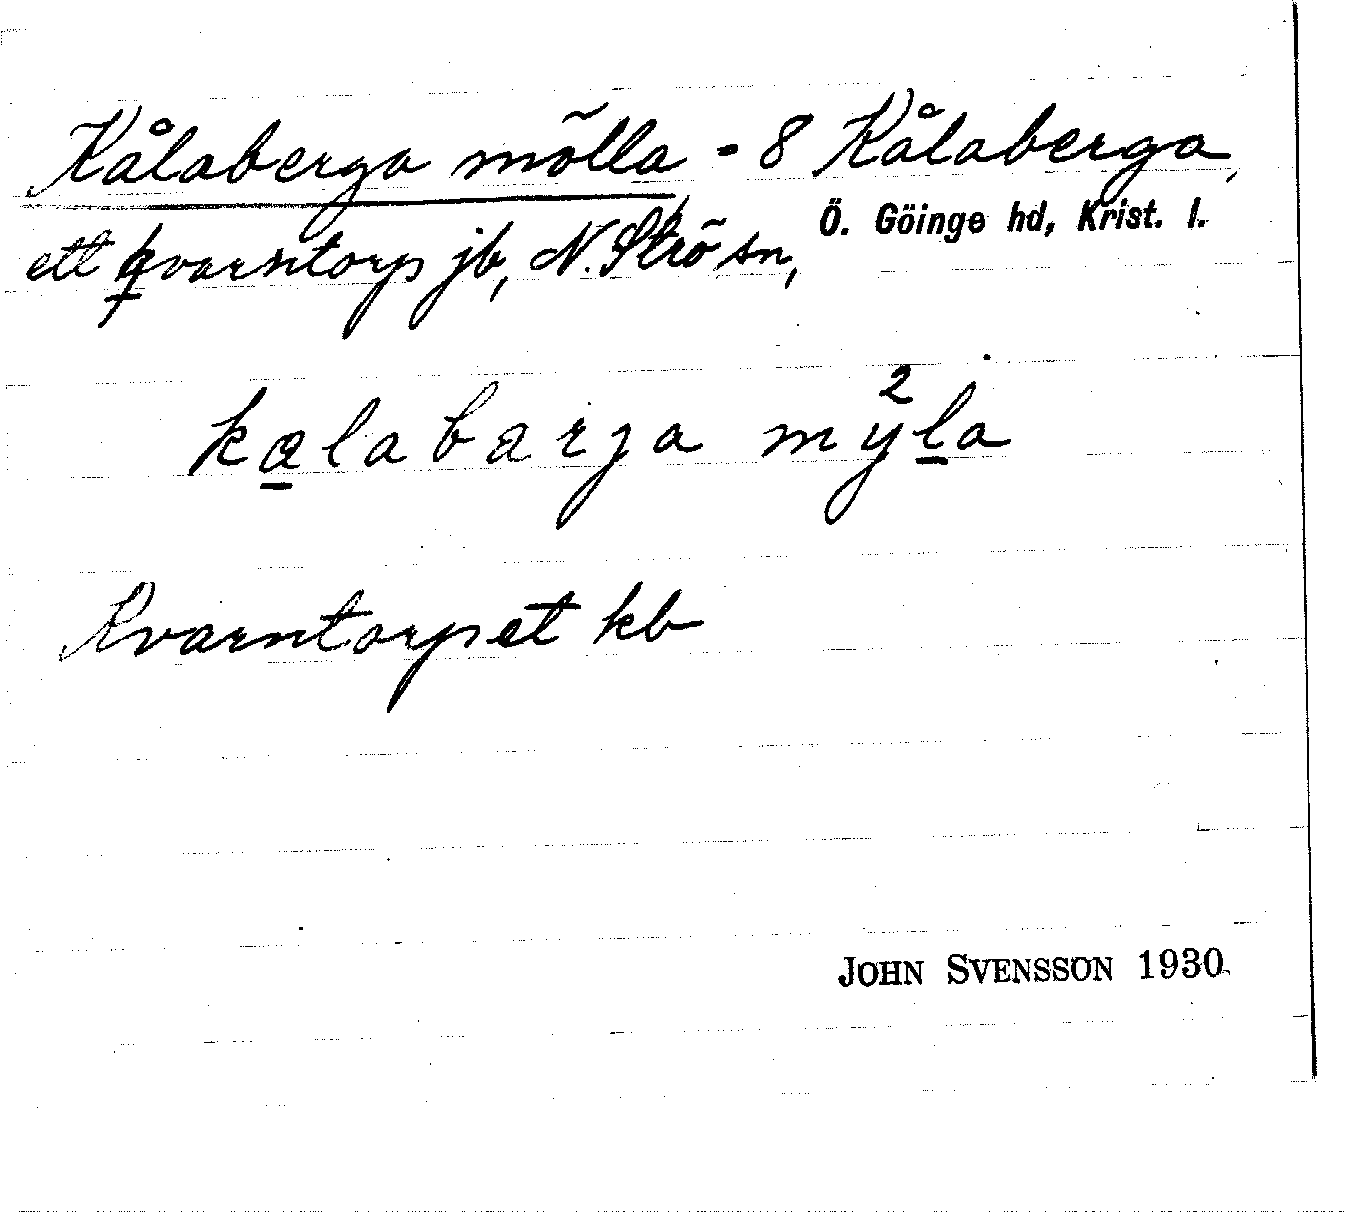 Kålaberga mölla - 8 Kålaberga,
Ö. Göinge hd, Krist. l.
ett kvarntorp jb, N. Strö sn,
kalabarja mÿ²la
Kvarntorpet kb
JOHN SVENSSON 1930